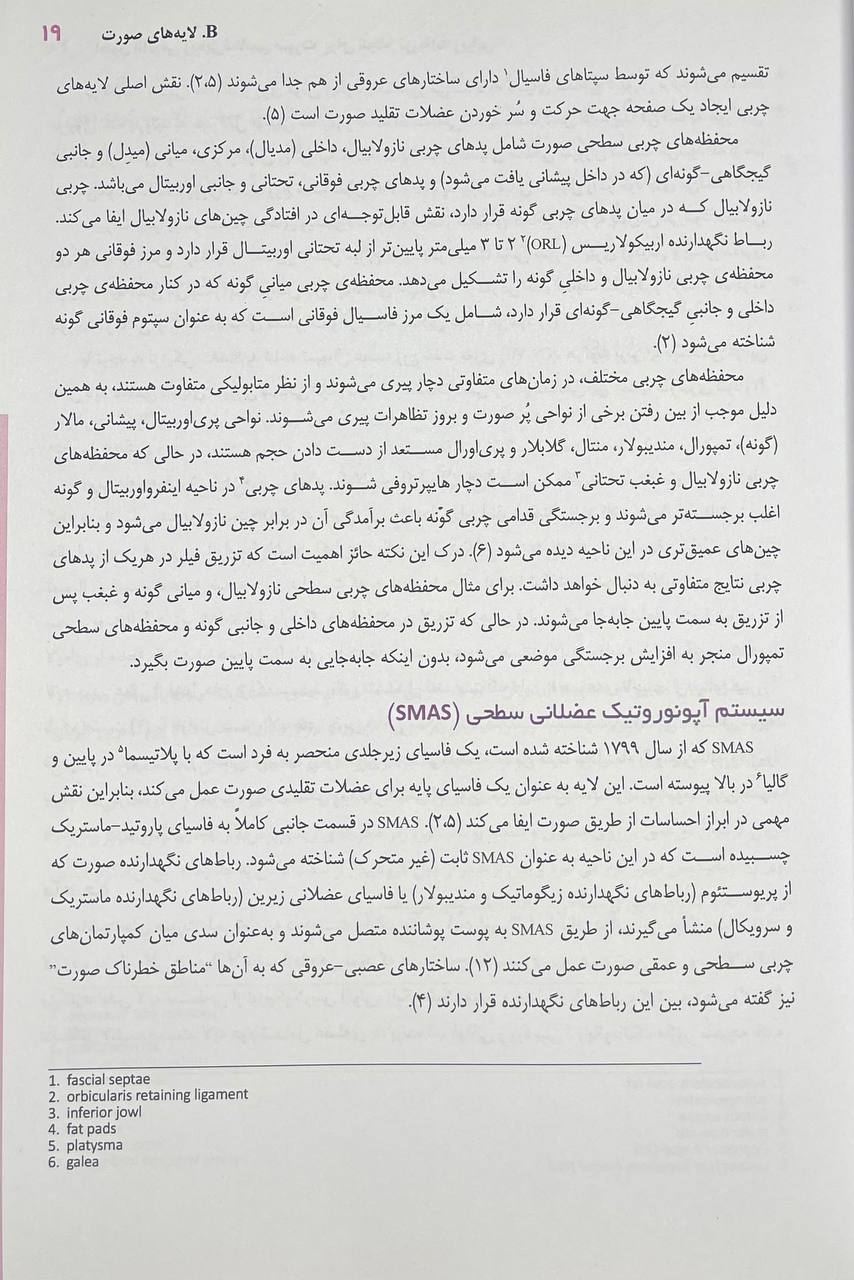 B. لایه‌های صورت ۱۹
تقسیم می‌شوند که توسط سپتاهای فاسیال۱ دارای ساختارهای عروقی از هم جدا می‌شوند (۲،۵). نقش اصلی لایه‌های
چربی ایجاد یک صفحه جهت حرکت و سُر خوردن عضلات تقلید صورت است (۵).
محفظه‌های چربی سطحی صورت شامل پدهای چربی نازولابیال، داخلی (مدیال)، مرکزی، میانی (میدِل) و جانبی
گیجگاهی–گونه‌ای (که در داخل پیشانی یافت می‌شود) و پدهای چربی فوقانی، تحتانی و جانبی اوربیتال می‌باشد. چربی
نازولابیال کــه در میان پدهای چربی گونه قرار دارد، نقش قابل‌توجــه‌ای در افتادگی چین‌های نازولابیال ایفا می‌کند.
ربــاط نگهدارنده اربیکولاریــس (ORL)۲ ۲ تا ۳ میلی‌متر پایین‌تر از لبه تحتانی اوربیتــال قرار دارد و مرز فوقانی هر دو
محفظه‌ی چربی نازولابیال و داخلیِ گونه را تشــکیل می‌دهد. محفظه‌ی چربی میانیِ گونه که در کنار محفظه‌ی چربی
داخلی و جانبیِ گیجگاهی–گونه‌ای قرار دارد، شــامل یک مرز فاســیال فوقانی اســت که به عنوان سپتوم فوقانی گونه
شناخته می‌شود (۲).
محفظه‌های چربی مختلف، در زمان‌های متفاوتی دچار پیری می‌شوند و از نظر متابولیکی متفاوت هستند، به همین
دلیل موجب از بین رفتن برخی از نواحی پُر صورت و بروز تظاهرات پیری می‌شــوند. نواحی پری‌اوربیتال، پیشانی، مالار
(گونه)، تمپورال، مندیبولار، منتال، گلابلار و پری‌اورال مســتعد از دســت دادن حجم هستند، در حالی که محفظه‌های
چربی نازولابیال و غبغب تحتانی۳ ممکن اســت دچار هایپرتروفی شــوند. پدهای چربی۴ در ناحیه اینفرواوربیتال و گونه
اغلب برجســته‌تر می‌شوند و برجستگی قدامی چربی گونه باعث برآمدگی آن در برابر چین نازولابیال می‌شود و بنابراین
چین‌های عمیق‌تری در این ناحیه دیده می‌شود (۶). درک این نکته حائز اهمیت است که تزریق فیلر در هریک از پدهای
چربی نتایج متفاوتی به دنبال خواهد داشت. برای مثال محفظه‌های چربی سطحی نازولابیال، و میانی گونه و غبغب پس
از تزریق به سمت پایین جابه‌جا می‌شوند. در حالی که تزریق در محفظه‌های داخلی و جانبی گونه و محفظه‌های سطحی
تمپورال منجر به افزایش برجستگی موضعی می‌شود، بدون اینکه جابه‌جایی به سمت پایین صورت بگیرد.
سیستم آپونوروتیک عضلانی سطحی (SMAS)
SMAS که از سال ۱۷۹۹ شناخته شده است، یک فاسیای زیرجلدی منحصر به فرد است که با پلاتیسما۵ در پایین و
گالیا۶ در بالا پیوسته است. این لایه به عنوان یک فاسیای پایه برای عضلات تقلیدی صورت عمل می‌کند، بنابراین نقش
مهمی در ابراز احساسات از طریق صورت ایفا می‌کند (۲،۵). SMAS در قسمت جانبی کاملاً به فاسیای پاروتید–ماستریک
چســبیده اســت که در این ناحیه به عنوان SMAS ثابت (غیر متحرک) شناخته می‌شود. رباط‌های نگهدارنده صورت که
از پریوســتئوم (رباط‌های نگهدارنده زیگوماتیک و مندیبولار) یا فاسیای عضلانی زیرین (رباط‌های نگهدارنده ماستریک
و سرویکال) منشأ می‌گیرند، از طریق SMAS به پوست پوشاننده متصل می‌شوند و به‌عنوان سدی میان کمپارتمان‌های
چربی ســطحی و عمقی صورت عمل می‌کنند (۱۲). ساختارهای عصبی–عروقی که به آن‌ها “مناطق خطرناک صورت”
نیز گفته می‌شود، بین این رباط‌های نگهدارنده قرار دارند (۴).
1. fascial septae
2. orbicularis retaining ligament
3. inferior jowl
4. fat pads
5. platysma
6. galea